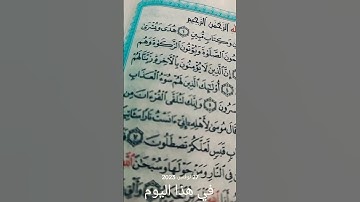 الرَّحْمَٰنِ الرَّحِيمِ
وَكِتَابٍ مُّبِينٍ ۝ هُدًى وَبُشْرَىٰ
ٱلصَّلَوٰةَ وَيُؤْتُونَ ٱلزَّكَوٰةَ وَهُم
إِنَّ ٱلَّذِينَ لَا يُؤْمِنُونَ بِٱلْءَاخِرَةِ زَيَّنَّا لَهُمْ
أُوْلَٰٓئِكَ ٱلَّذِينَ لَهُمْ سُوٓءُ ٱلْعَذَابِ
وَإِنَّكَ لَتُلَقَّى ٱلْقُرْءَانَ مِن
قَالَ مُوسَىٰ لِأَهْلِهِۦٓ إِنِّىٓ ءَانَسْتُ نَارًا سَـَٔاتِيكُم
قَبَسٍ لَّعَلَّكُمْ تَصْطَلُونَ
فِى ٱلنَّارِ وَمَنْ حَوْلَهَا وَسُبْحَٰنَ
2023
في هذا اليوم